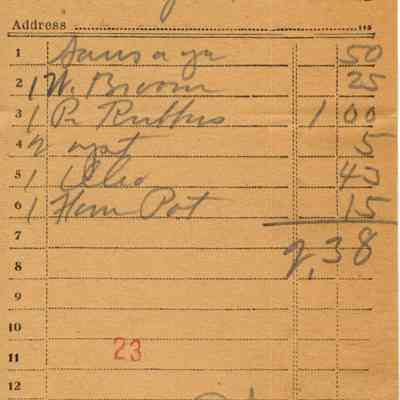 Address
1 Sausage 50
2 1 W. Broom 25
3 1 Pr Rubbers 1 00
4 2 5
5 1 Oleo 43
6 1 Ham Pot 15
7 2,38
8
9
10
11 23
12